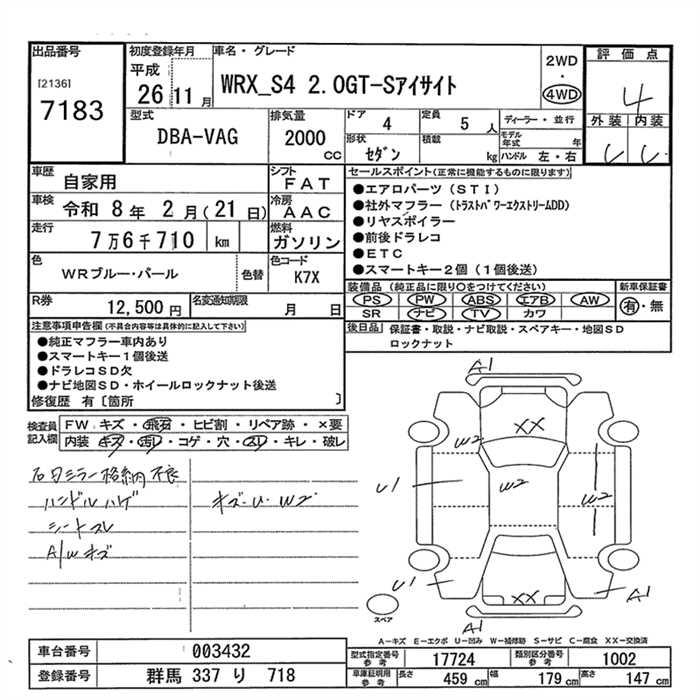 出品番号
[2136]
7183
初度登録年月
平成
26 11月
車名・グレード
WRX_S4 2.0GT-Sアイサイト
2WD
・
4WD
評価点
4
外装 内装
型式
DBA-VAG
排気量
2000
CC
ドア
4
定員
5 人
形状
セダン
積載
kg
ディーラー・並行
モデル年式 年
ハンドル 左・右
車歴
自家用
シフト
FAT
車検
令和 8年 2月(21日)
冷房
AAC
走行
7万6千710 km
燃料
ガソリン
色
WRブルー・パール
色替
色コード
K7X
R券
12,500円
名変通知期限
月 日
セールスポイント(正常に機能するものに限ります)
●エアロパーツ(STI)
●社外マフラー(トラストパワーエクストリームDD)
●リヤスポイラー
●前後ドラレコ
●ETC
●スマートキー2個(1個後送)
装備品(純正品に限り○をつけてください)
PS PW ABS エアB AW
SR ナビ TV カワ
新車保証書
有・無
後日品
保証書・取説・ナビ取説・スペアキー・地図SD
ロックナット
注意事項申告欄(不具合内容等は具体的に記入して下さい)
●純正マフラー車内あり
●スマートキー1個後送
●ドラレコSD欠
●ナビ地図SD・ホイールロックナット後送
修復歴 有〔箇所 〕
検査員記入欄
FW キズ・飛石・ヒビ割・リペア跡・×要
内装 キズ・汚レ・コゲ・穴・スレ・キレ・破レ
右日ミラー格納不良
ハンドルハゲ
シートスレ
A/Wキズ
キズ・U・W2
A1
XX
W2
U1
W2
W2
U1
XX
A1
A1
スペア
A-キズ E-エクボ U-凹み W-補修跡 S-サビ C-腐食 XX-交換済
車台番号
003432
登録番号
群馬 337 り 718
型式指定番号
参考
17724
類別区分番号
参考
1002
車庫証明用
参考
長さ
459 cm
幅
179 cm
高さ
147 cm